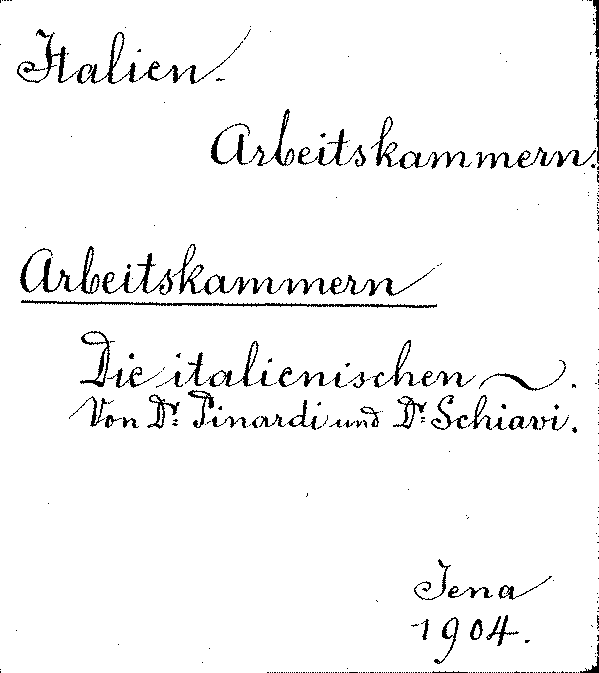 Italien.
Arbeitskammern.
Arbeitskammern
Die italienischen ~.
Von Dr. Pinardi und Dr. Schiavi.
Jena
1904.